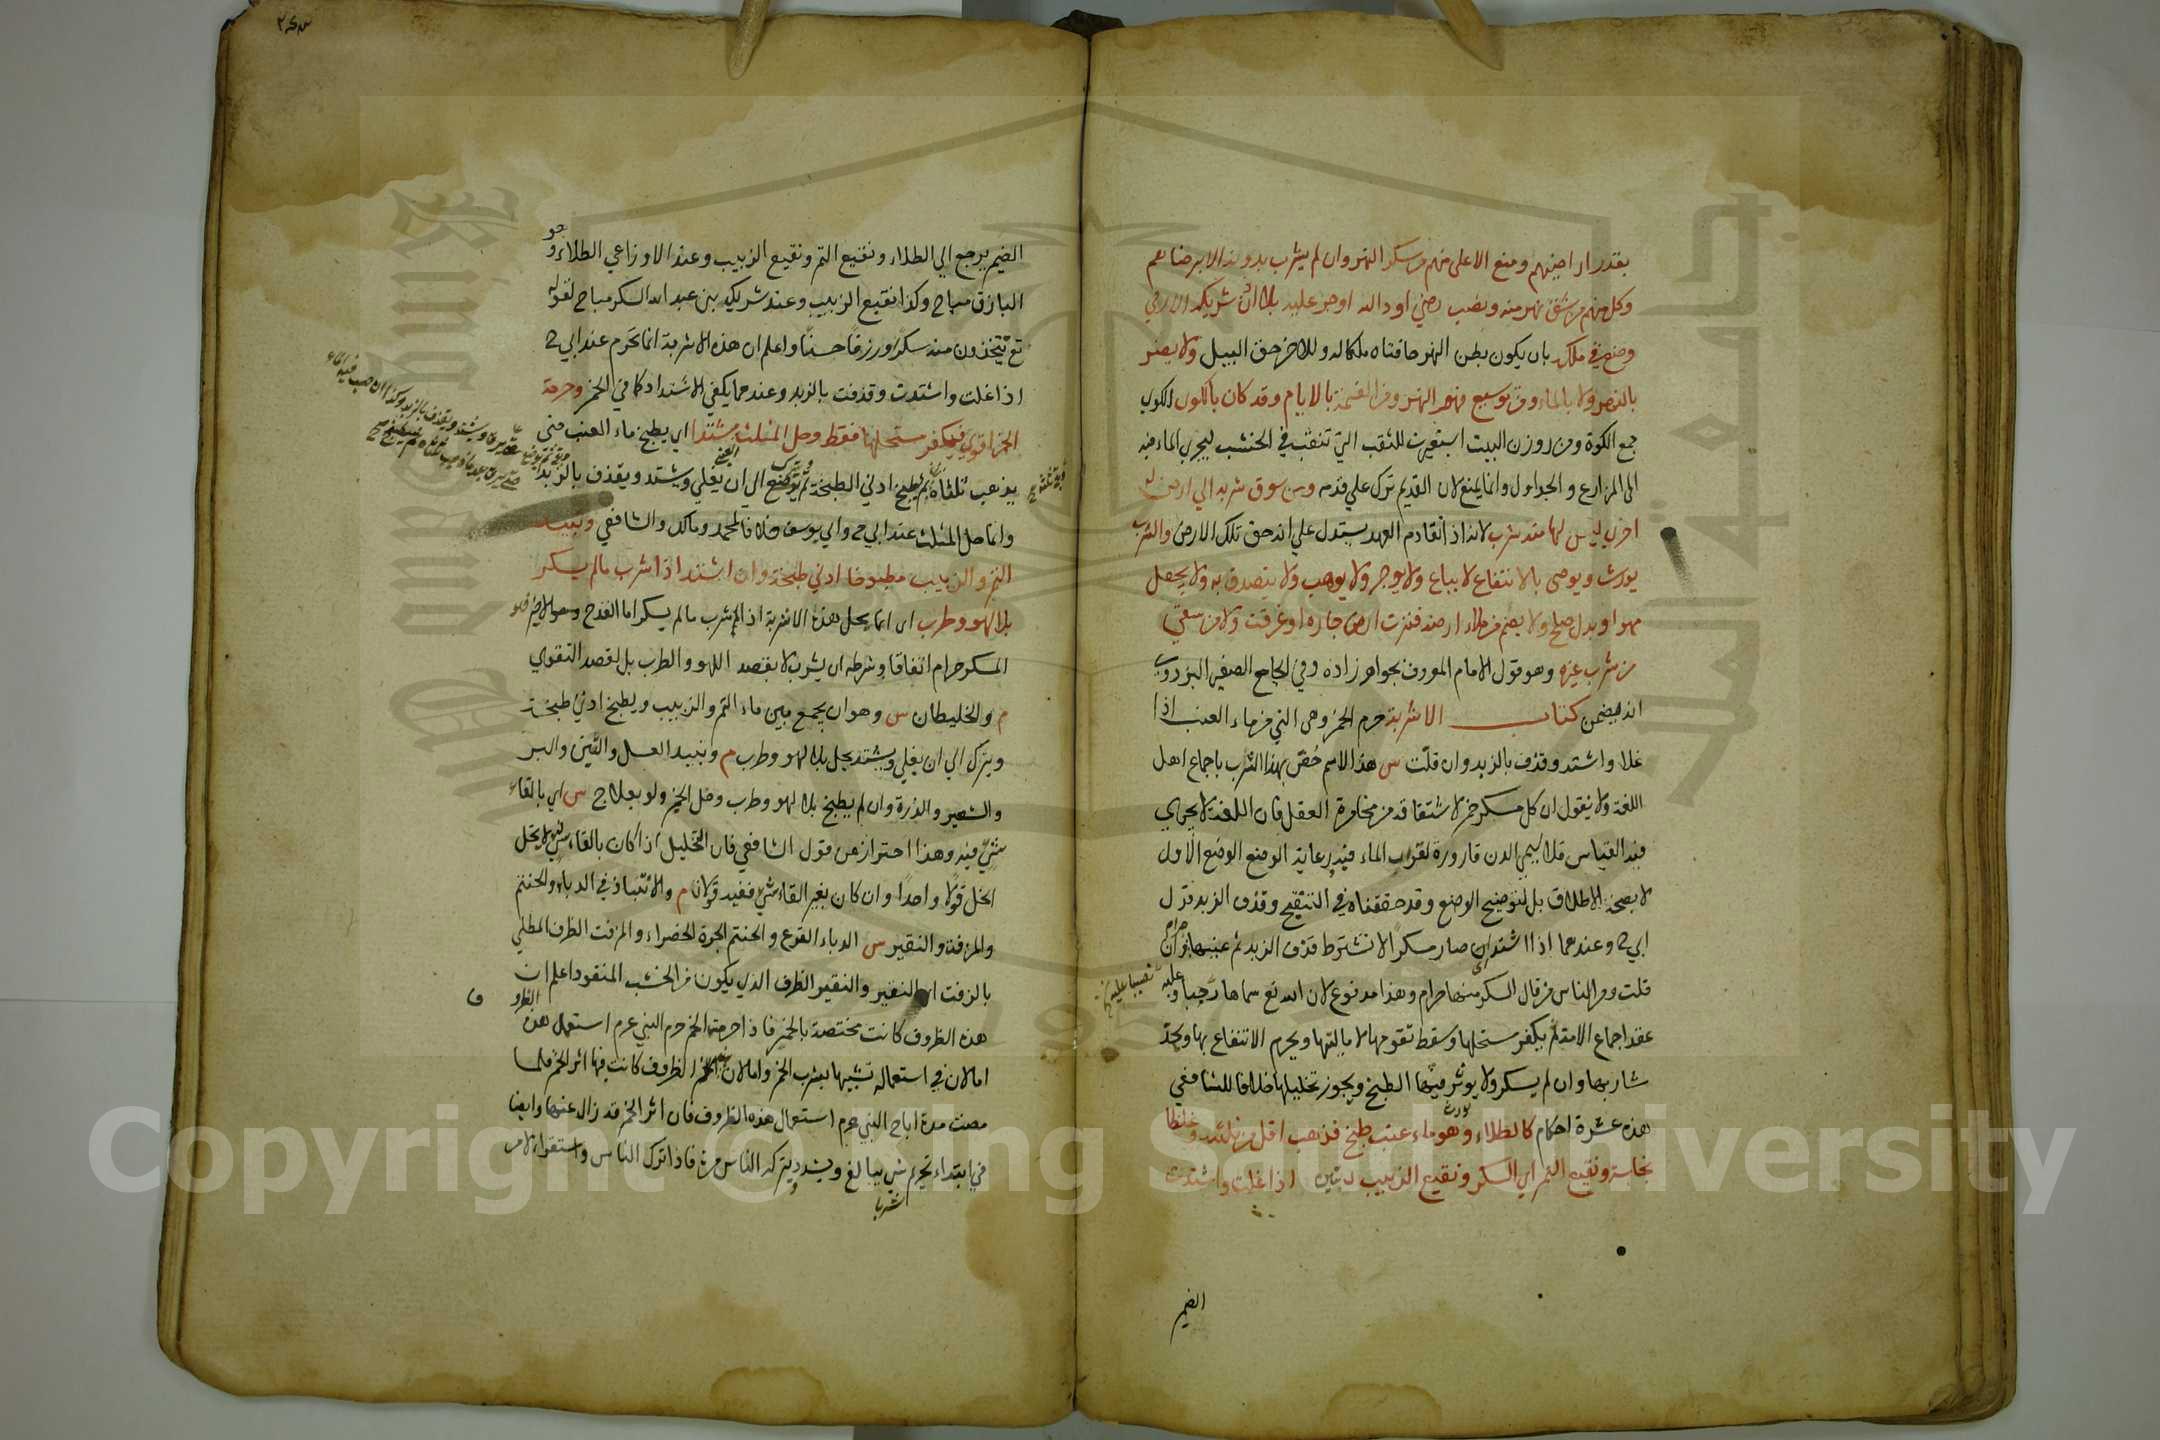 بقدر اراضيهم ومنع الاعلى منهم من سكر النهر وان لم يشرب بدونه الا برضاهم
وكل منهم من شق نهر منه ونصب رحى او دالية او جسر عليه بلا اذن شريكه الا رحى
وضع في ملكه بان يكون بطن النهر حافتاه ملكا له وللاخر حق التسييل ولا يضر
بالنهر ولا بالماء ومن توسيع فم النهر ومن القسمة بالايام وقد كان بالكوى الكوى
جمع الكوة وهي روزن البيت استعيرت للثقب التي تثقب في الخشب ليجري الماء منه
الى المزارع والجداول وانما يمنع لان القديم ترك على قدمه ومن سوق شربه الى ارض له
اخرى ليس لها منه شرب لانه اذا تقادم العهد يستدل على انه حق تلك الارض والشرب
يورث ويوصى بالانتفاع لا يباع ولا يوجر ولا يوهب ولا يتصدق به ولا يجعل
مهرا وبدل صلح ولا يضمن من ملأ ارضه فنزت ارض جاره او غرقت ولا من سقى
من شرب غيره وهو قول الامام المعروف بخواهر زاده وفي الجامع الصغير البزدوي
انه يضمن كتاب الاشربة حرم الخمر وهي الني من ماء العنب اذا
غلا واشتد وقذف بالزبد وان قلت س هذا الاسم خص بهذا الشرب باجماع اهل
اللغة ولا نقول ان كل مسكر خمر لاشتقاقه من مخامرة العقل فان اللغة لا يجري
فيه القياس فلا يسمى الدن قارورة لقرار الماء فيه ورعاية الوضع الوضع الاول
لا بصحة الاطلاق بل لتوضيح الوضع وقد حققناه في التنقيح وقذف الزبد قول
ابي ح وعندهما اذا اشتد اى صار مسكرا لا نشترط قذف الزبد ثم عينها حرام وان
قلت ومن الناس من قال السكر منها حرام وهذا مدفوع لان الله تع سماها رجسا وعليه
عقد اجماع الامة ثم يكفر مستحلها وسقط تقومها لا ماليتها ويحرم الانتفاع بها ويحد
شاربها وان لم يسكر ولا يوثر فيها الطبخ ويجوز تخليلها خلافا للشافعي
هذه عشرة احكام كالطلاء وهو ماء عنب طبخ فذهب اقل من ثلثيه وغلظا
نجاسة ونقيع التمر اي السكر ونقيع الزبيب نيئين اذا غلت واشتدت
الضمير
الضمير يرجع الى الطلاء ونقيع التمر ونقيع الزبيب وعند الاوزاعي الطلاء وهو
الباذق مباح وكذا نقيع الزبيب وعند شريك بن عبد الله السكر مباح لقوله
تع تتخذون منه سكرا ورزقا حسنا واعلم ان هذه الاشربة انما تحرم عند ابي ح
اذا غلت واشتدت وقذفت بالزبد وعندهما يكفي الاشتداد كما في الخمر وحرمة
الخمر اقوى فيكفر مستحلها فقط وحل المثلث مشتدا اي يطبخ ماء العنب حتى
يذهب ثلثاه ثم يطبخ ادنى الطبخة ثم يوضع الى ان يغلي ويشتد ويقذف بالزبد
وانما حل المثلث عند ابي ح وابي يوسف خلافا لمحمد ومالك والشافعي ونبيذ
التمر والزبيب مطبوخا ادنى طبخة وان اشتد اذا شرب ما لم يسكر
بلا لهو وطرب اى انما يحل هذه الاشربة اذا شرب ما لم يسكر اما القدح الاخير وهو
المسكر حرام اتفاقا وشرطه ان يشرب لا بقصد اللهو والطرب بل لقصد التقوي
م والخليطان س وهو ان يجمع بين ماء التمر والزبيب ويطبخ ادنى طبخة
ويترك الى ان يغلي ويشتد يحل بلا لهو وطرب م ونبيذ العسل والتين والبر
والشعير والذرة وان لم يطبخ بلا لهو وطرب وخل الخمر ولو بعلاج س اي بالقاء
شيء فيه وهذا احتراز عن قول الشافعي فان التخليل اذا كان بالقاء شيء لا يحل
الخل قولا واحدا وان كان بغير القاء شيء ففيه قولان م والانتباذ في الدباء والحنتم
والمزفت والنقير س الدباء القرع والحنتم الجرة الخضراء والمزفت الظرف المطلي
بالزفت اي النقير والنقير الظرف الذي يكون من الخشب المنقور واعلم ان
هذه الظروف كانت مختصة بالخمر فاذا حرمت الخمر حرم النبي عرم استعمال هذه الظروف
اما لان في استعماله تشبيها بشرب الخمر واما لان هذه الظروف كانت فيها اثر الخمر فلما
مضت مدة اباح النبي عرم استعمال هذه الظروف فان اثر الخمر قد زال عنها وايضا
في ابتداء تحريم شيء يبالغ ويشدد ليترك الناس مرة فاذا ترك الناس واستقر الامر